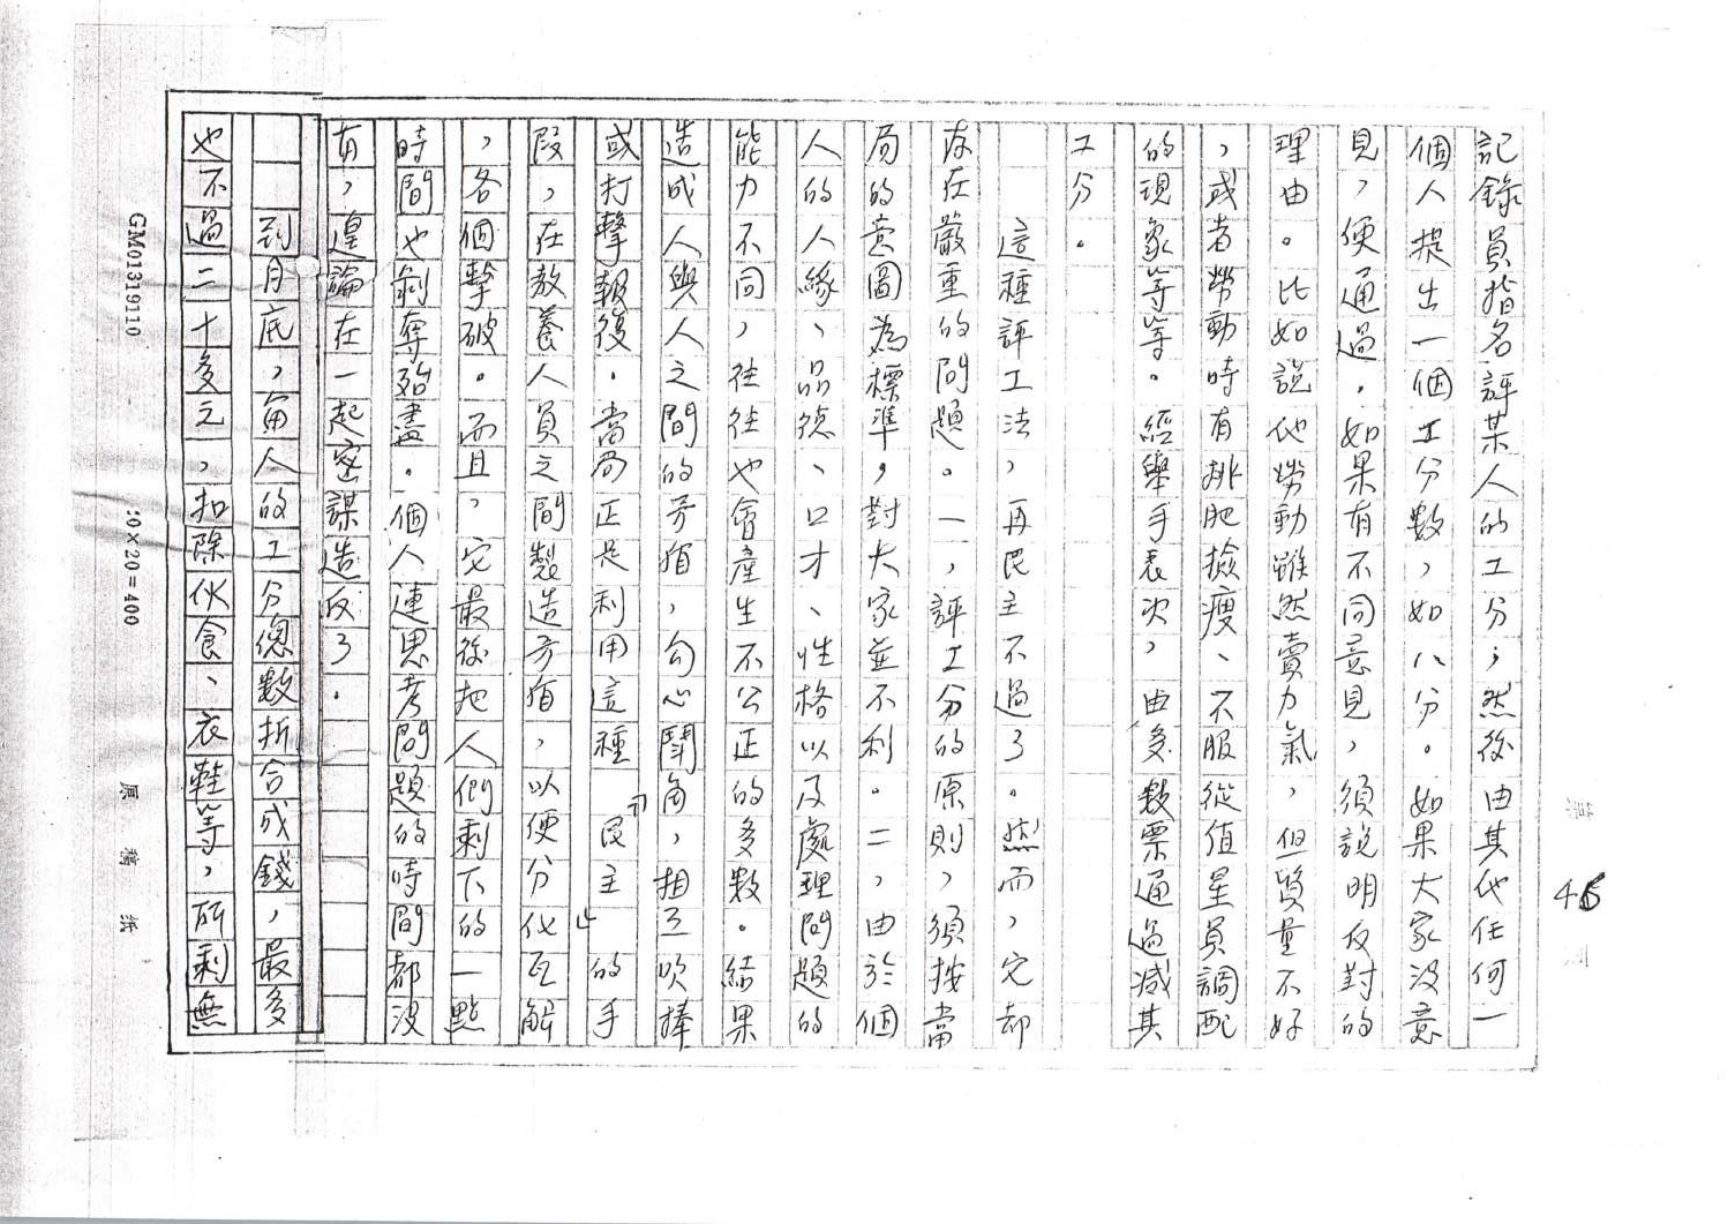 記錄員指名評某人的工分；然後由其他任何一
個人提出一個工分數，如八分。如果大家沒意
見，便通過．如果有不同意見，須說明反對的
理由。比如說他勞動雖然賣力氣，但質量不好
，或者勞動時有挑肥撿瘦、不服從值星員調配
的現象等等。經舉手表決，由多數票通過減其
工分。
這種評工法，再民主不過了。然而，它却
存在嚴重的問題。一，評工分的原則，須按當
局的意圖為標準，對大家並不利。二，由於個
人的人緣、品德、口才、性格以及處理問題的
能力不同，往往也會產生不公正的多數。結果
造成人與人之間的矛盾，勾心鬪角，相互吹捧
或打擊報復．當局正是利用這種「民主」的手
段，在教養人員之間製造矛盾，以便分化瓦解
，各個擊破。而且，它最後把人們剩下的一點
時間也剝奪殆盡。個人連思考問題的時間都沒
有，遑論在一起密謀造反了．
到月底，每人的工分總數折合成錢，最多
也不過二十多元，扣除伙食、衣鞋等，所剩無
GM01319110
:0×20=400
原稿紙